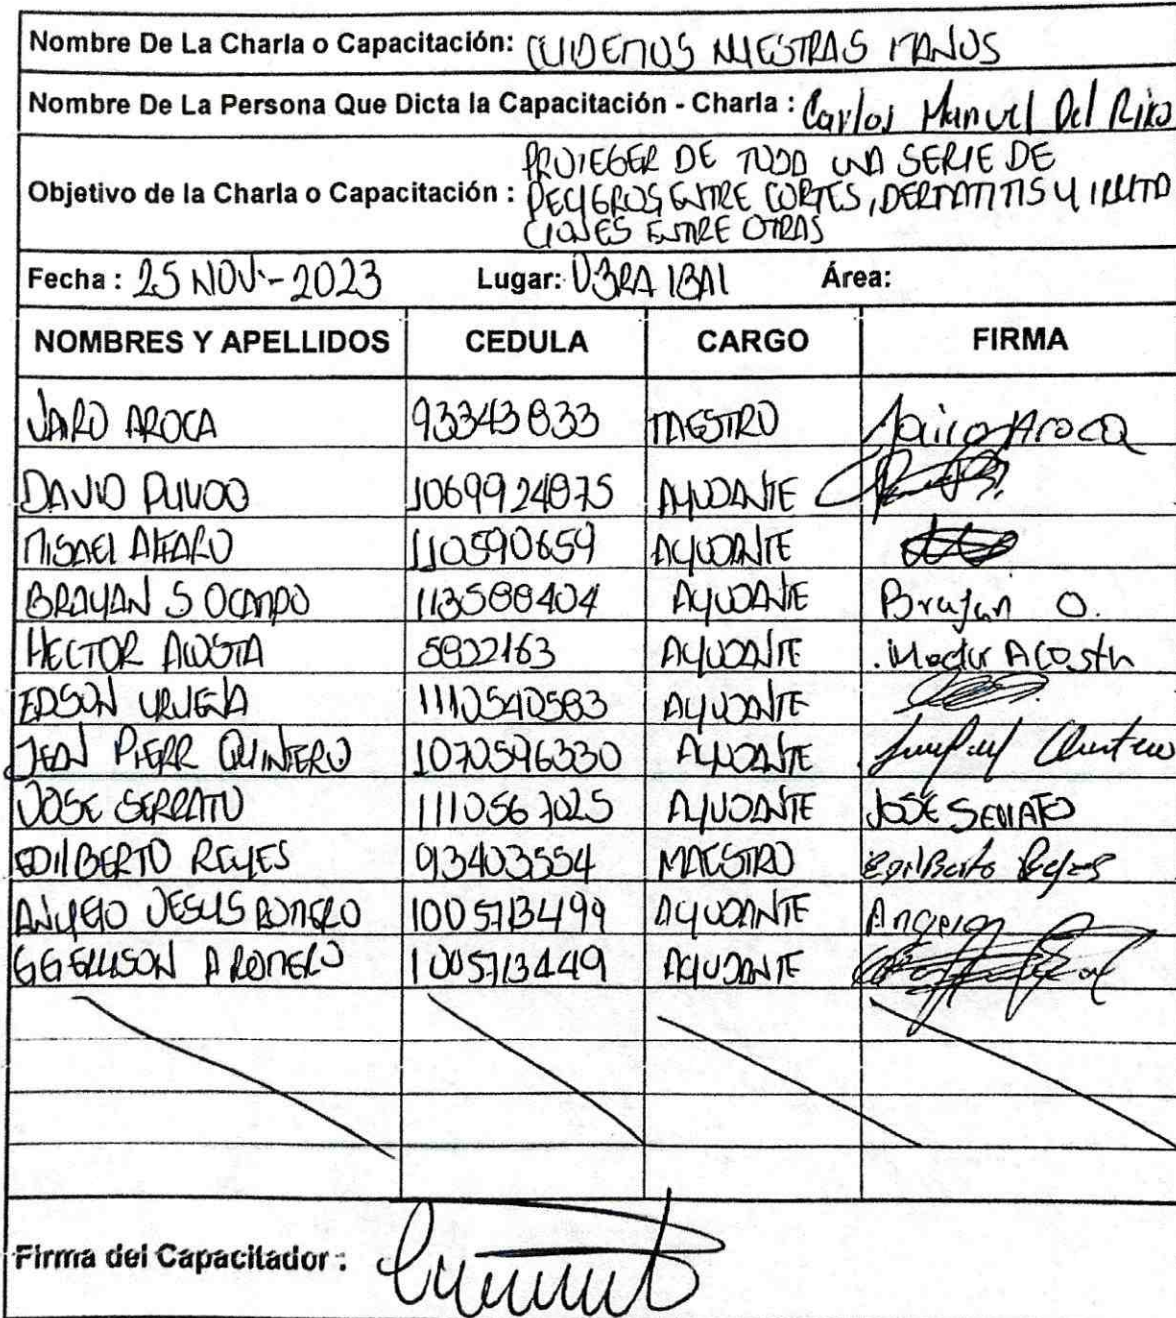 Nombre De La Charla o Capacitación: CUIDEMOS NUESTRAS MANOS
Nombre De La Persona Que Dicta la Capacitación - Charla : Carlos Manuel Del Rio
Objetivo de la Charla o Capacitación : PROTEGER DE TODA UNA SERIE DE
PELIGROS ENTRE CORTES, DERMATITIS Y IRRITA
CIONES ENTRE OTRAS
Fecha : 25 NOV - 2023 Lugar: OBRA IBAI Área:
NOMBRES Y APELLIDOS CEDULA CARGO FIRMA
JAIRO AROCA 93343833 MAESTRO Jairo Aroca
DAVID 1069924875 AYUDANTE
MISAEL ALFARO 110590659 AYUDANTE
BRAYAN S OCAMPO 113588404 AYUDANTE Brayan O.
HECTOR ACOSTA 5822163 AYUDANTE Hector Acosta
EDSON URUEÑA 1110540583 AYUDANTE
JEAN PIERR QUINTERO 1070596330 AYUDANTE
JOSE SERRATO 1110567025 AYUDANTE JOSÉ SERRATO
EDILBERTO REYES 93403554 MAESTRO Edilberto Reyes
ANGELO JESUS ROMERO 1005713499 AYUDANTE Angelo
A ROMERO 1005713449 AYUDANTE
Firma del Capacitador :